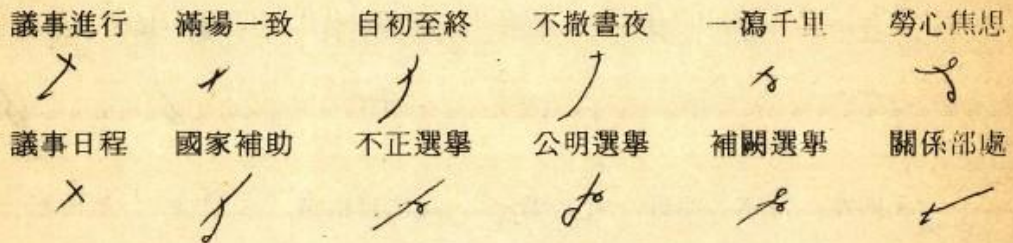 議事進行 滿場一致 自初至終 不撤晝夜 一瀉千里 勞心焦思
議事日程 國家補助 不正選擧 公明選擧 補闕選擧 關係部處